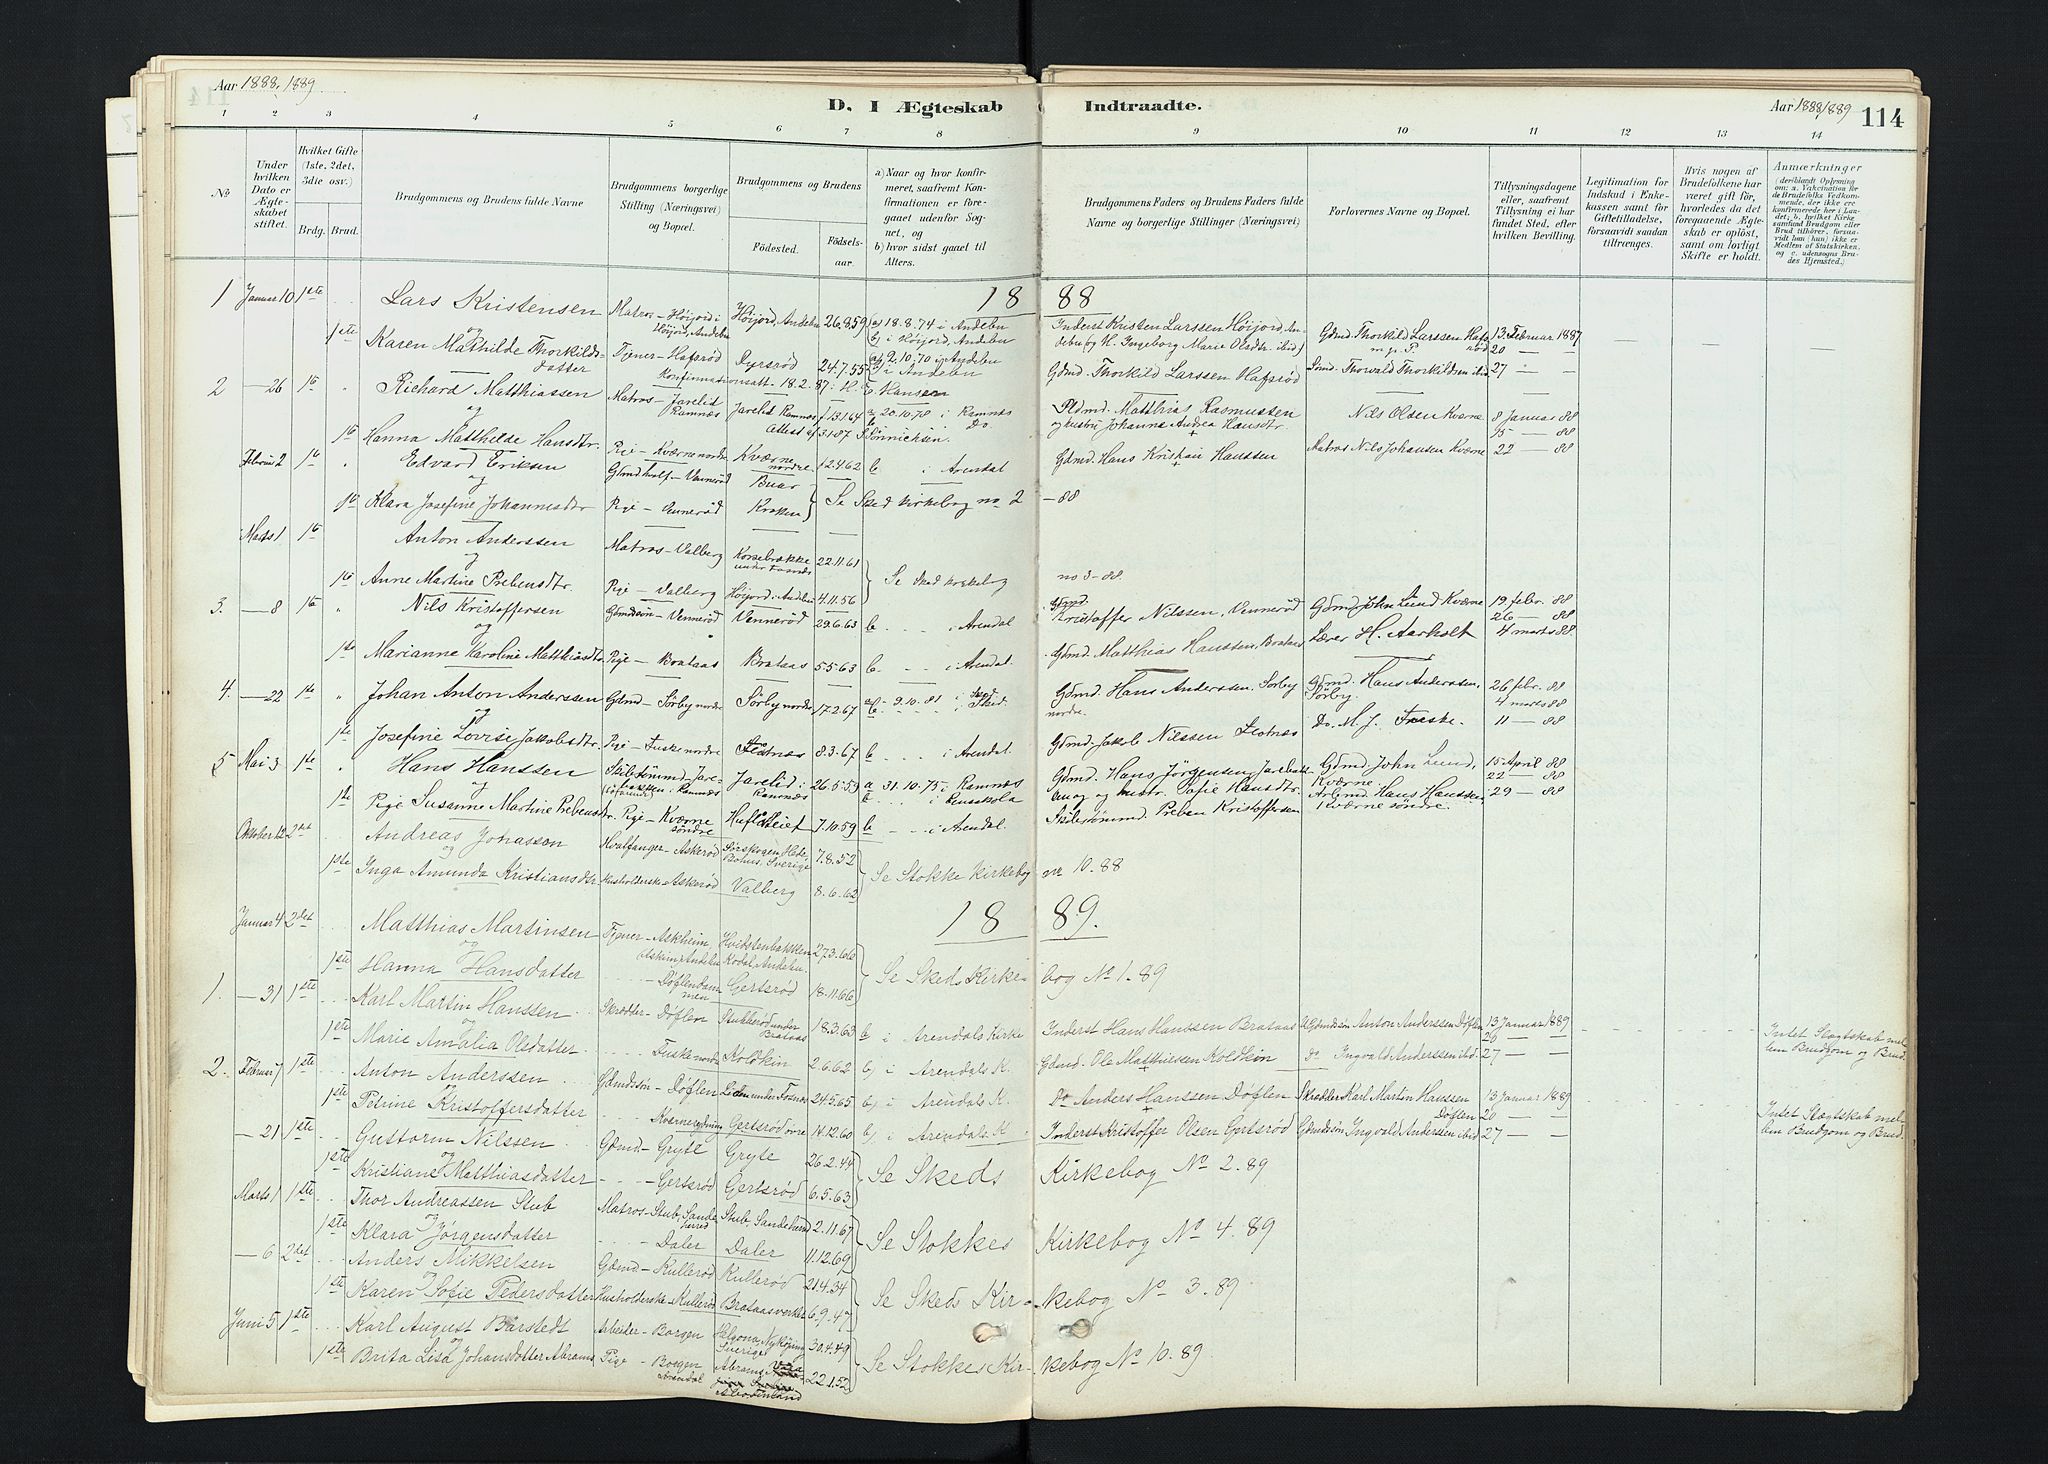 Aar 1888, 1889
D. I Ægteskab Indtraadte.
Aar 1888/889 114
1 2 3 4 5 6 7 8 9 10 11 12 13 14
No
Under hvilken Dato er Ægteskabet stiftet.
Hvilket Gifte (1ste, 2det, 3die osv.)
Brdg. Brud.
Brudgommens og Brudens fulde Navne
Brudgommens borgerlige Stilling (Næringsvei) og Bopæl.
Brudgommens og Brudens
Fødested. Fødselsaar.
a) Naar og hvor konfirmeret, saafremt Konfirmationen er foregaaet udenfor Sognet, og
b) hvor sidst gaaet til Alters.
Brudgommens Faders og Brudens Faders fulde Navne og borgerlige Stillinger (Næringsvei)
Forlovernes Navne og Bopæl.
Tillysningsdagene eller, saafremt Tillysning ei har fundet Sted, efter hvilken Bevilling.
Legitimation for Indskud i Enkekassen samt for Giftetilladelse, forsaavidt saadan tiltrænges.
Hvis nogen af Brudefolkene har været gift før, hvorledes da det foregaaende Ægteskab er opløst, samt om lovligt Skifte er holdt.
Anmærkninger
(deriblandt Oplysning om: a. Vakcination for de Brudefolks Vedkommende, der ikke ere konfirmerede her i Landet; b. hvilket Kirkesamfund Brudgom eller Brud tilhører, forsaavidt han (hun) ikke er Medlem af Statskirken, og c. udensogns Brudes Hjemsted.)
18 88
1 Januar 10 1ste Lars Kristensen Matros - Høijord i Høijord, Andebu Høijord, Andebu 26.8.59 a) 18.8.74 i Andebu b) i Høijord, Andebu Inderst Kristen Larssen Høijord, Andebu (og H. Ingeborg Marie Olsdtr. ibid) Gdmd. Thorkild Larssen Hafsrød 13 Februar 1887
og 20 —
1ste Karen Mathilde Thorkildsdatter Tjener - Hafsrød Dyrsrød 24.7.55 a) 2.10.70 i Andebu b) i Andebu Gdmd. Thorkild Larssen Hafsrød Sømd. Thorvald Thorkildsen ibid 27 —
Konfirmationsatt. 18.2.87 i H. E. Hansen
2 — 26 1ste Richard Matthiassen Matros - Jarelid Ramnæs Jarelid Ramnæs 13.1.64 a 20.10.78 i Ramnæs b Do. Pldmd. Matthias Rasmussen og hustru Johanne Andrea Hansdtr. Nils Olsen Kværne 8 Januar 88
og Attest af 3.1.87 Sønnichsen 15 — 88
1ste Hanna Matthilde Hansdtr. Pige - Kværne nordre Kværne nordre 12.4.62 b i Arendal Gdmd. Hans Kristian Hanssen Matros Nils Johansen Kværne 22 — 88
Februar 2 1ste Edvard Eriksen Gdmd half - Vennerød Buar
og Se Sked kirkebog no 2 — 88
1ste Klara Josefine Johannesdtr Pige - Vennerød Kraken
Marts 1 1ste Anton Anderssen Matros - Valberg Korsebrække under Fosnæs 22.11.61
og Se Sked kirkebog no 3 - 88.
1ste Anne Martine Prebensdtr. Pige - Valberg Høijord i Andebu 4.11.56
3. — 8 1ste Nils Kristoffersen Gdmdssøn - Vennerød Vennerød 29.6.63 b i Arendal Gdmd. Kristoffer Nilssen, Vennerød Gdmd. John Lund Kværne 19 febr. 88
og 26 — 88
1ste Marianne Karoline Matthiasdtr Pige - Brataas Brataas 5.5.63 b i Arendal. Gdmd. Matthias Hanssen, Brataas Lærer H. Aarholt 4 marts 88.
4. — 22 1ste Johan Anton Anderssen Gdmd - Sørby nordre Sørby nordre 17.2.67 a 9.10.81 i Sked b i Sked. Gdmd. Hans Anderssen, Sørby nordre. Gdmd. Hans Anderssen, Sørby. 26 febr. 88
og 4 marts 88
1ste Josefine Lovise Jakobsdtr. Pige - Fuske nordre 8.3.67 b i Arendal. Gdmd. Jakob Nilssen Do. M. J. Fuske. 11 — 88
5 Mai 3 1ste Hans Hanssen Skibstømmd - Jarebakken i Ramnæs Jarelid i Ramnæs 26.5.59 a 31.10.75 i Ramnæs Gdmd. Hans Jørgensen Gdmd. John Lund, Kværne 15 April 88
og og hustr. Sofie Hansdtr. 22 — 88
1ste Pige Susanne Martine Prebensdtr. Pige - Kværne søndre 7.10.59 b i Arendal Skibstømmd. Preben Kristoffersen Arbmd. Hans Hanssen Kværne søndre. 29 — 88
Oktober 12 2det Andreas Johansson Hvalfanger - Askerød Bohus, Sverige 7.8.52
og Se Stokke kirkebog nr 10.88
1ste Inga Amunda Kristiansdtr Husholderske - Askerød Valberg 8.6.62
18 89.
Januar 4 2det Matthias Martinsen Tjener - Askheim, Andebu Hvidstenbakken Kodal, Andebu 27.3.66
og Se Skeds Kirkebog No 1.89
1ste Hanna Hansdatter Døflendammen Gertsrød 18.11.66
1. — 31 1ste Karl Martin Hanssen Skrædder - Døflen Stubberød under Brataas 18.3.63 b i Arendals Kirke Inderst Hans Hanssen Brataas Gdmdssøn Anton Anderssen Døflen 13 Januar 1889
og 20 —
1ste Marie Amalia Olsdatter Fuske nordre Holdkin 2.6.62 b) i Arendals K. Gdmd. Ole Matthiesen Holdkin do Ingvald Anderssen ibid. 27 — Intet Slægtskab mellem Brudgom og Brud.
2. Februar 7 1ste Anton Anderssen Gdmdssøn - Døflen under Fosnæs 24.5.65 b) i Arendals K. Do Anders Hanssen Døflen Skrædder Karl Martin Hanssen Døflen 13 Januar 1889
1ste Petrine Kristoffersdatter Gertsrød øvre 14.12.60 b) i Arendals K. Inderst Kristoffer Olsen Gertsrød Gdmdssøn Ingvald Anderssen ibid 20 —
27 — Intet Slægtskab mellem Brudgom og Brud.
— 21 1ste Guttorm Nilssen Gdmd - Gryte Gryte 26.2.44
og Se Skeds Kirkebog No 2.89
1ste Kristiane Matthiasdatter Gertsrød Gertsrød 6.5.63
Marts 1 1ste Thor Andreassen Stub Matros - Stub, Sandeherred Stub, Sandeherred 2.11.67
og Se Stokkes Kirkebog No 4.89
1ste Klara Jørgensdatter Daler Daler 11.12.69
— 6 2det Anders Mikkelsen Gdmd - Kullerød Kullerød 21.4.34
og Se Skeds Kirkebog No 3.89
1ste Karen Sofie Pedersdatter Husholderske - Kullerød Brataasverket 6.9.47
Juni 5 1ste Karl August Barstedt Arbeider - Borgen Helgona, Nykøjing Sverige 30.4.49
og Se Stokkes Kirkebog No 10.89
1ste Brita Lisa Johansdatter Abrams Pige - Borgen Arendal Abrams 22.1.52